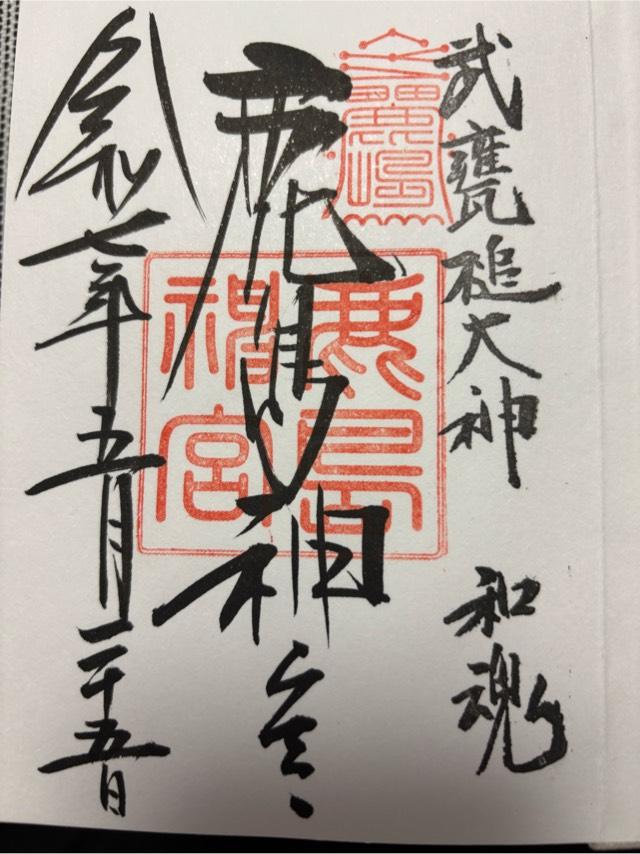 武甕槌大神 和魂
鹿島神宮
鹿島神宮
令和七年五月二十五日